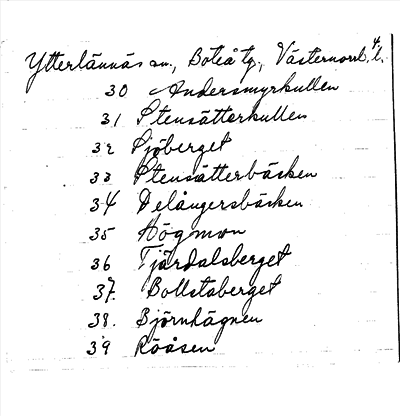 Ytterlännäs sn., Boteå tg., Västernorrl. l.
4
30 Andersmyrkullen
31 Stensätterkullen
32 Sjöberget
33 Stensätterbäcken
34 Delångersbäcken
35 Högmon
36 Tjärdalsberget
37. Bollstaberget
38. Björnhägnen
39 Rödsen